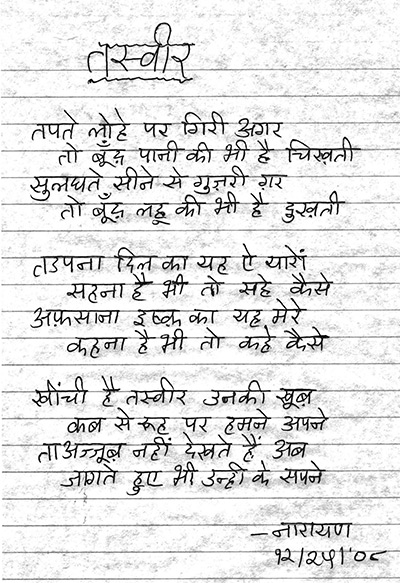 तस्वीर
तपते लोहे पर गिरी अगर
तो बूँद पानी की भी है चिखती
सुलघते सीने से गुज़री ग़र
तो बूँद लहू की भी है दुखती
तडपना दिल का यह ऐ यारों
सहना है भी तो सहे कैसे
अफ़साना इष्क़ का यह मेरे
कहना है भी तो कहे कैसे
खींची है तस्वीर उनकी खूब़
कब से रूह पर हमने अपने
ताअज्जूब़ नहीं देखते हैं अब
जागते हुए भी उन्ही के सपने
—नारायण
१२/२५/'०८